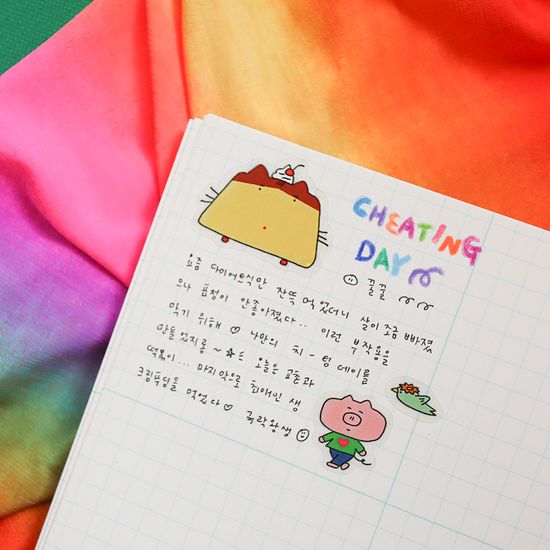 CHEATING
DAY
꿀꿀
요즘 다이어트식만 잔뜩 먹었더니 살이 조금 빠졌
으나 표정이 안좋아졌다.. 이런 부작용을
막기 위해 ♡ 나만의 치-팅 데이를
만들었지롱 ~ ★ 오늘은 교촌과
떡볶이... 마지막으로 최애인 생
크림푸딩을 먹었다 ♡
극락왕생